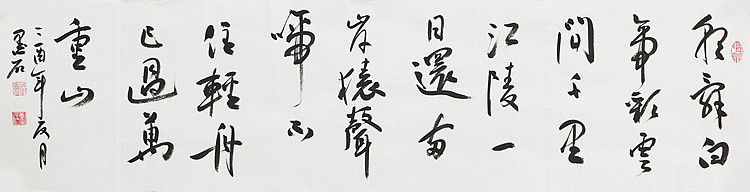 朝辞白
帝彩雲
間千里
江陵一
日還兩
岸猿聲
啼不
住輕舟
已過萬
重山
二〇酉年夏月
墨石